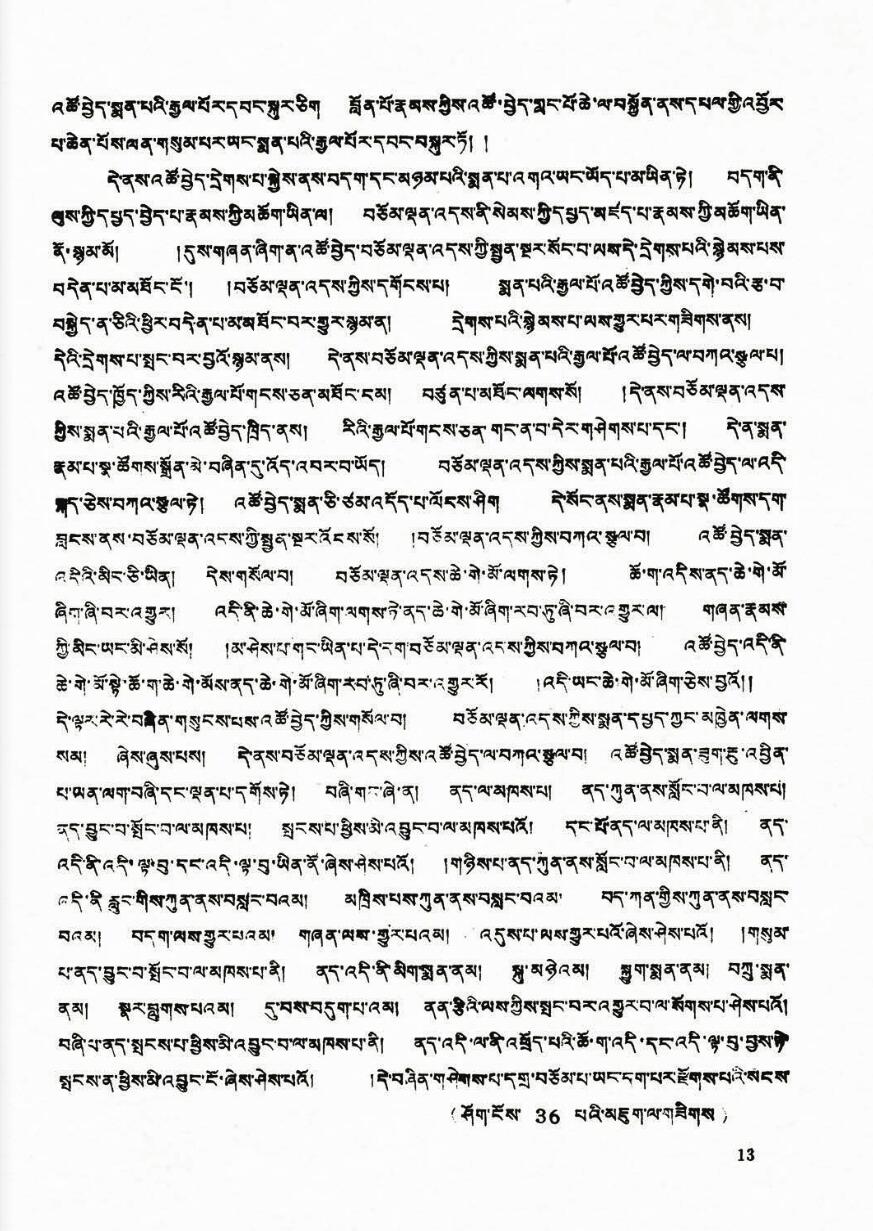 འཚོ་བྱེད་སྨན་པའི་རྒྱལ་པོར་དབང་སྐུར་ཅིག བློན་པོ་རྣམས་ཀྱིས་འཚོ་བྱེད་གླང་པོ་ཆེ་ལ་བསྐྱོན་ནས་དཔལ་གྱི་འབྱོར་
པ་ཆེན་པོས་ལན་གསུམ་པར་ཡང་སྨན་པའི་རྒྱལ་པོར་དབང་བསྐུར་ཏོ། །
དེ་ནས་འཚོ་བྱེད་དྲེགས་པ་སྐྱེས་ནས་བདག་དང་མཉམ་པའི་སྨན་པ་འགའ་ཡང་ཡོད་པ་མ་ཡིན་ཏེ། བདག་ནི་
ལུས་ཀྱི་དཔྱད་བྱེད་པ་རྣམས་ཀྱི་མཆོག་ཡིན་ལ། བཅོམ་ལྡན་འདས་ནི་སེམས་ཀྱི་དཔྱད་མཛད་པ་རྣམས་ཀྱི་མཆོག་ཡིན་
ནོ་སྙམ་མོ། །དུས་གཞན་ཞིག་ན་འཚོ་བྱེད་བཅོམ་ལྡན་འདས་ཀྱི་སྤྱན་སྔར་སོང་བ་ལས་དེ་དྲེགས་པའི་སྙེམས་པས་
བདེན་པ་མ་མཐོང་ངོ་། །བཅོམ་ལྡན་འདས་ཀྱིས་དགོངས་པ། སྨན་པའི་རྒྱལ་པོ་འཚོ་བྱེད་ཀྱིས་དགེ་བའི་རྩ་བ་
བསྐྱེད་ན་ཅིའི་ཕྱིར་བདེན་པ་མ་མཐོང་བར་གྱུར་སྙམ་ན། དྲེགས་པའི་སྙེམས་པ་ལས་གྱུར་པར་གཟིགས་ནས།
དེའི་དྲེགས་པ་སྤང་བར་བྱའོ་སྙམ་ནས། དེ་ནས་བཅོམ་ལྡན་འདས་ཀྱིས་སྨན་པའི་རྒྱལ་པོ་འཚོ་བྱེད་ལ་བཀའ་སྩལ་པ།
འཚོ་བྱེད་ཁྱོད་ཀྱིས་རིའི་རྒྱལ་པོ་གངས་ཅན་མཐོང་ངམ། བཙུན་པ་མཐོང་ལགས་སོ། །དེ་ནས་བཅོམ་ལྡན་འདས་
ཀྱིས་སྨན་པའི་རྒྱལ་པོ་འཚོ་བྱེད་ཁྲིད་ནས། རིའི་རྒྱལ་པོ་གངས་ཅན་གང་ན་བ་དེར་གཤེགས་པ་དང་། དེ་ན་སྨན་
རྣམ་པ་སྣ་ཚོགས་སྒྲོན་མེ་བཞིན་དུ་འོད་འབར་བ་ཡོད། བཅོམ་ལྡན་འདས་ཀྱིས་སྨན་པའི་རྒྱལ་པོ་འཚོ་བྱེད་ལ་འདི་
སྐད་ཅེས་བཀའ་སྩལ་ཏེ། འཚོ་བྱེད་སྨན་ཅི་ཙམ་འདོད་པ་ལོངས་ཤིག དེ་སོང་ནས་སྨན་རྣམ་པ་སྣ་ཚོགས་དག་
བླངས་ནས་བཅོམ་ལྡན་འདས་ཀྱི་སྤྱན་སྔར་འོངས་སོ། །བཅོམ་ལྡན་འདས་ཀྱིས་བཀའ་སྩལ་བ། འཚོ་བྱེད་སྨན་
འདིའི་མིང་ཅི་ཡིན། དེས་གསོལ་བ། བཅོམ་ལྡན་འདས་ཆེ་གེ་མོ་ལགས་ཏེ། ཆོ་ག་འདིས་ནད་ཆེ་གེ་མོ་
ཞིག་ཞི་བར་འགྱུར། འདི་ནི་ཆེ་གེ་མོ་ཞིག་ལགས་ཏེ་ནད་ཆེ་གེ་མོ་ཞིག་རབ་ཏུ་ཞི་བར་འགྱུར་ལ། གཞན་རྣམས་
ཀྱི་མིང་ཡང་མི་ཤེས་སོ། །མ་ཤེས་པ་གང་ཡིན་པ་དེ་དག་བཅོམ་ལྡན་འདས་ཀྱིས་བཀའ་སྩལ་བ། འཚོ་བྱེད་འདི་ནི་
ཆེ་གེ་མོ་སྟེ་ཆོ་ག་ཆེ་གེ་མོས་ནད་ཆེ་གེ་མོ་ཞིག་རབ་ཏུ་ཞི་བར་འགྱུར་རོ། །འདི་ཡང་ཆེ་གེ་མོ་ཞིག་ཅེས་བྱའོ།།
དེ་ལྟར་རེ་རེ་བཞིན་གསུངས་པས་འཚོ་བྱེད་ཀྱིས་གསོལ་བ། བཅོམ་ལྡན་འདས་ཀྱིས་སྨན་དཔྱད་ཀྱང་མཁྱེན་ལགས་
སམ། ཞེས་ཞུས་པས། དེ་ནས་བཅོམ་ལྡན་འདས་ཀྱིས་འཚོ་བྱེད་ལ་བཀའ་སྩལ་བ། འཚོ་བྱེད་སྨན་ཟུག་རྔུ་འབྱིན་
པ་ཡན་ལག་བཞི་དང་ལྡན་པ་དགོས་ཏེ། བཞི་གང་ཞེ་ན། ནད་ལ་མཁས་པ། ནད་ཀུན་ནས་སློང་བ་ལ་མཁས་པ།
ནད་བྱུང་བ་སྤོང་བ་ལ་མཁས་པ། སྤངས་པ་ཕྱིས་མི་འབྱུང་བ་ལ་མཁས་པའོ། དང་པོ་ནད་ལ་མཁས་པ་ནི། ནད་
འདི་ནི་འདི་ལྟ་བུ་དང་འདི་ལྟ་བུ་ཡིན་ནོ་ཞེས་ཤེས་པའོ། །གཉིས་པ་ནད་ཀུན་ནས་སློང་བ་ལ་མཁས་པ་ནི། ནད་
འདི་ནི་རླུང་གིས་ཀུན་ནས་བསླང་བའམ། མཁྲིས་པས་ཀུན་ནས་བསླང་བའམ་ བད་ཀན་གྱིས་ཀུན་ནས་བསླང་
བའམ། བདག་ལས་གྱུར་པའམ་ གཞན་ལས་གྱུར་པའམ། འདུས་པ་ལས་གྱུར་པའོ་ཞེས་ཤེས་པའོ། །གསུམ་
པ་ནད་བྱུང་བ་སྤོང་བ་ལ་མཁས་པ་ནི། ནད་འདི་ནི་མིག་སྨན་ནམ། སྐུ་མཉེའམ། སྐྱུག་སྨན་ནམ། བཀྲུ་སྨན་
ནམ། སྣར་བླུགས་པའམ། དུ་བས་བདུག་པ་འམ། ནན་རྩིའི་ལས་ཀྱིས་སྤང་བར་འགྱུར་བ་ལ་སོགས་པ་ཤེས་པའོ།
བཞི་པ་ནད་སྤངས་པ་ཕྱིས་མི་འབྱུང་བ་ལ་མཁས་པ་ནི། ནད་འདི་ལ་ནི་འཕྲོད་པའི་ཆོ་ག་འདི་དང་འདི་ལྟ་བུ་བྱས་ཏེ་
སྤངས་ན་ཕྱིས་མི་འབྱུང་ངོ་ཞེས་ཤེས་པའོ། །དེ་བཞིན་གཤེགས་པ་དགྲ་བཅོམ་པ་ཡང་དག་པར་རྫོགས་པའི་སངས་
(ཤོག་ངོས་ 36 པའི་མཇུག་ལ་གཟིགས)
13